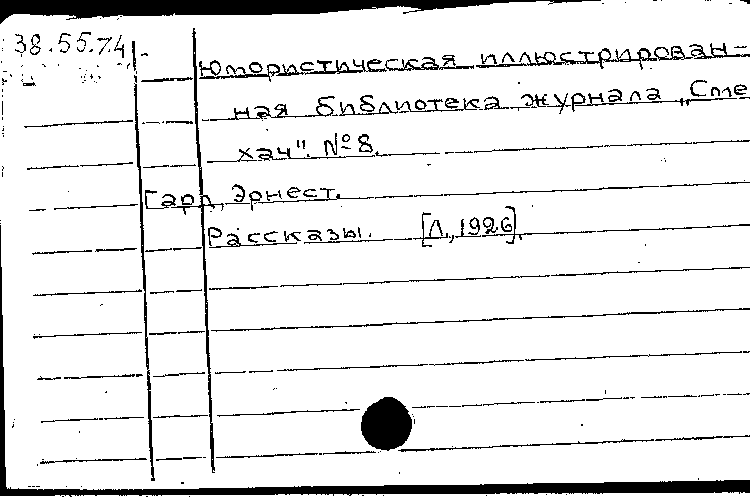 38.55.74.
Юмористическая иллюстрирован-
ная библиотека журнала „Сме
хач". № 8.
Гард, Эрнест.
Рассказы. [Л., 1926].